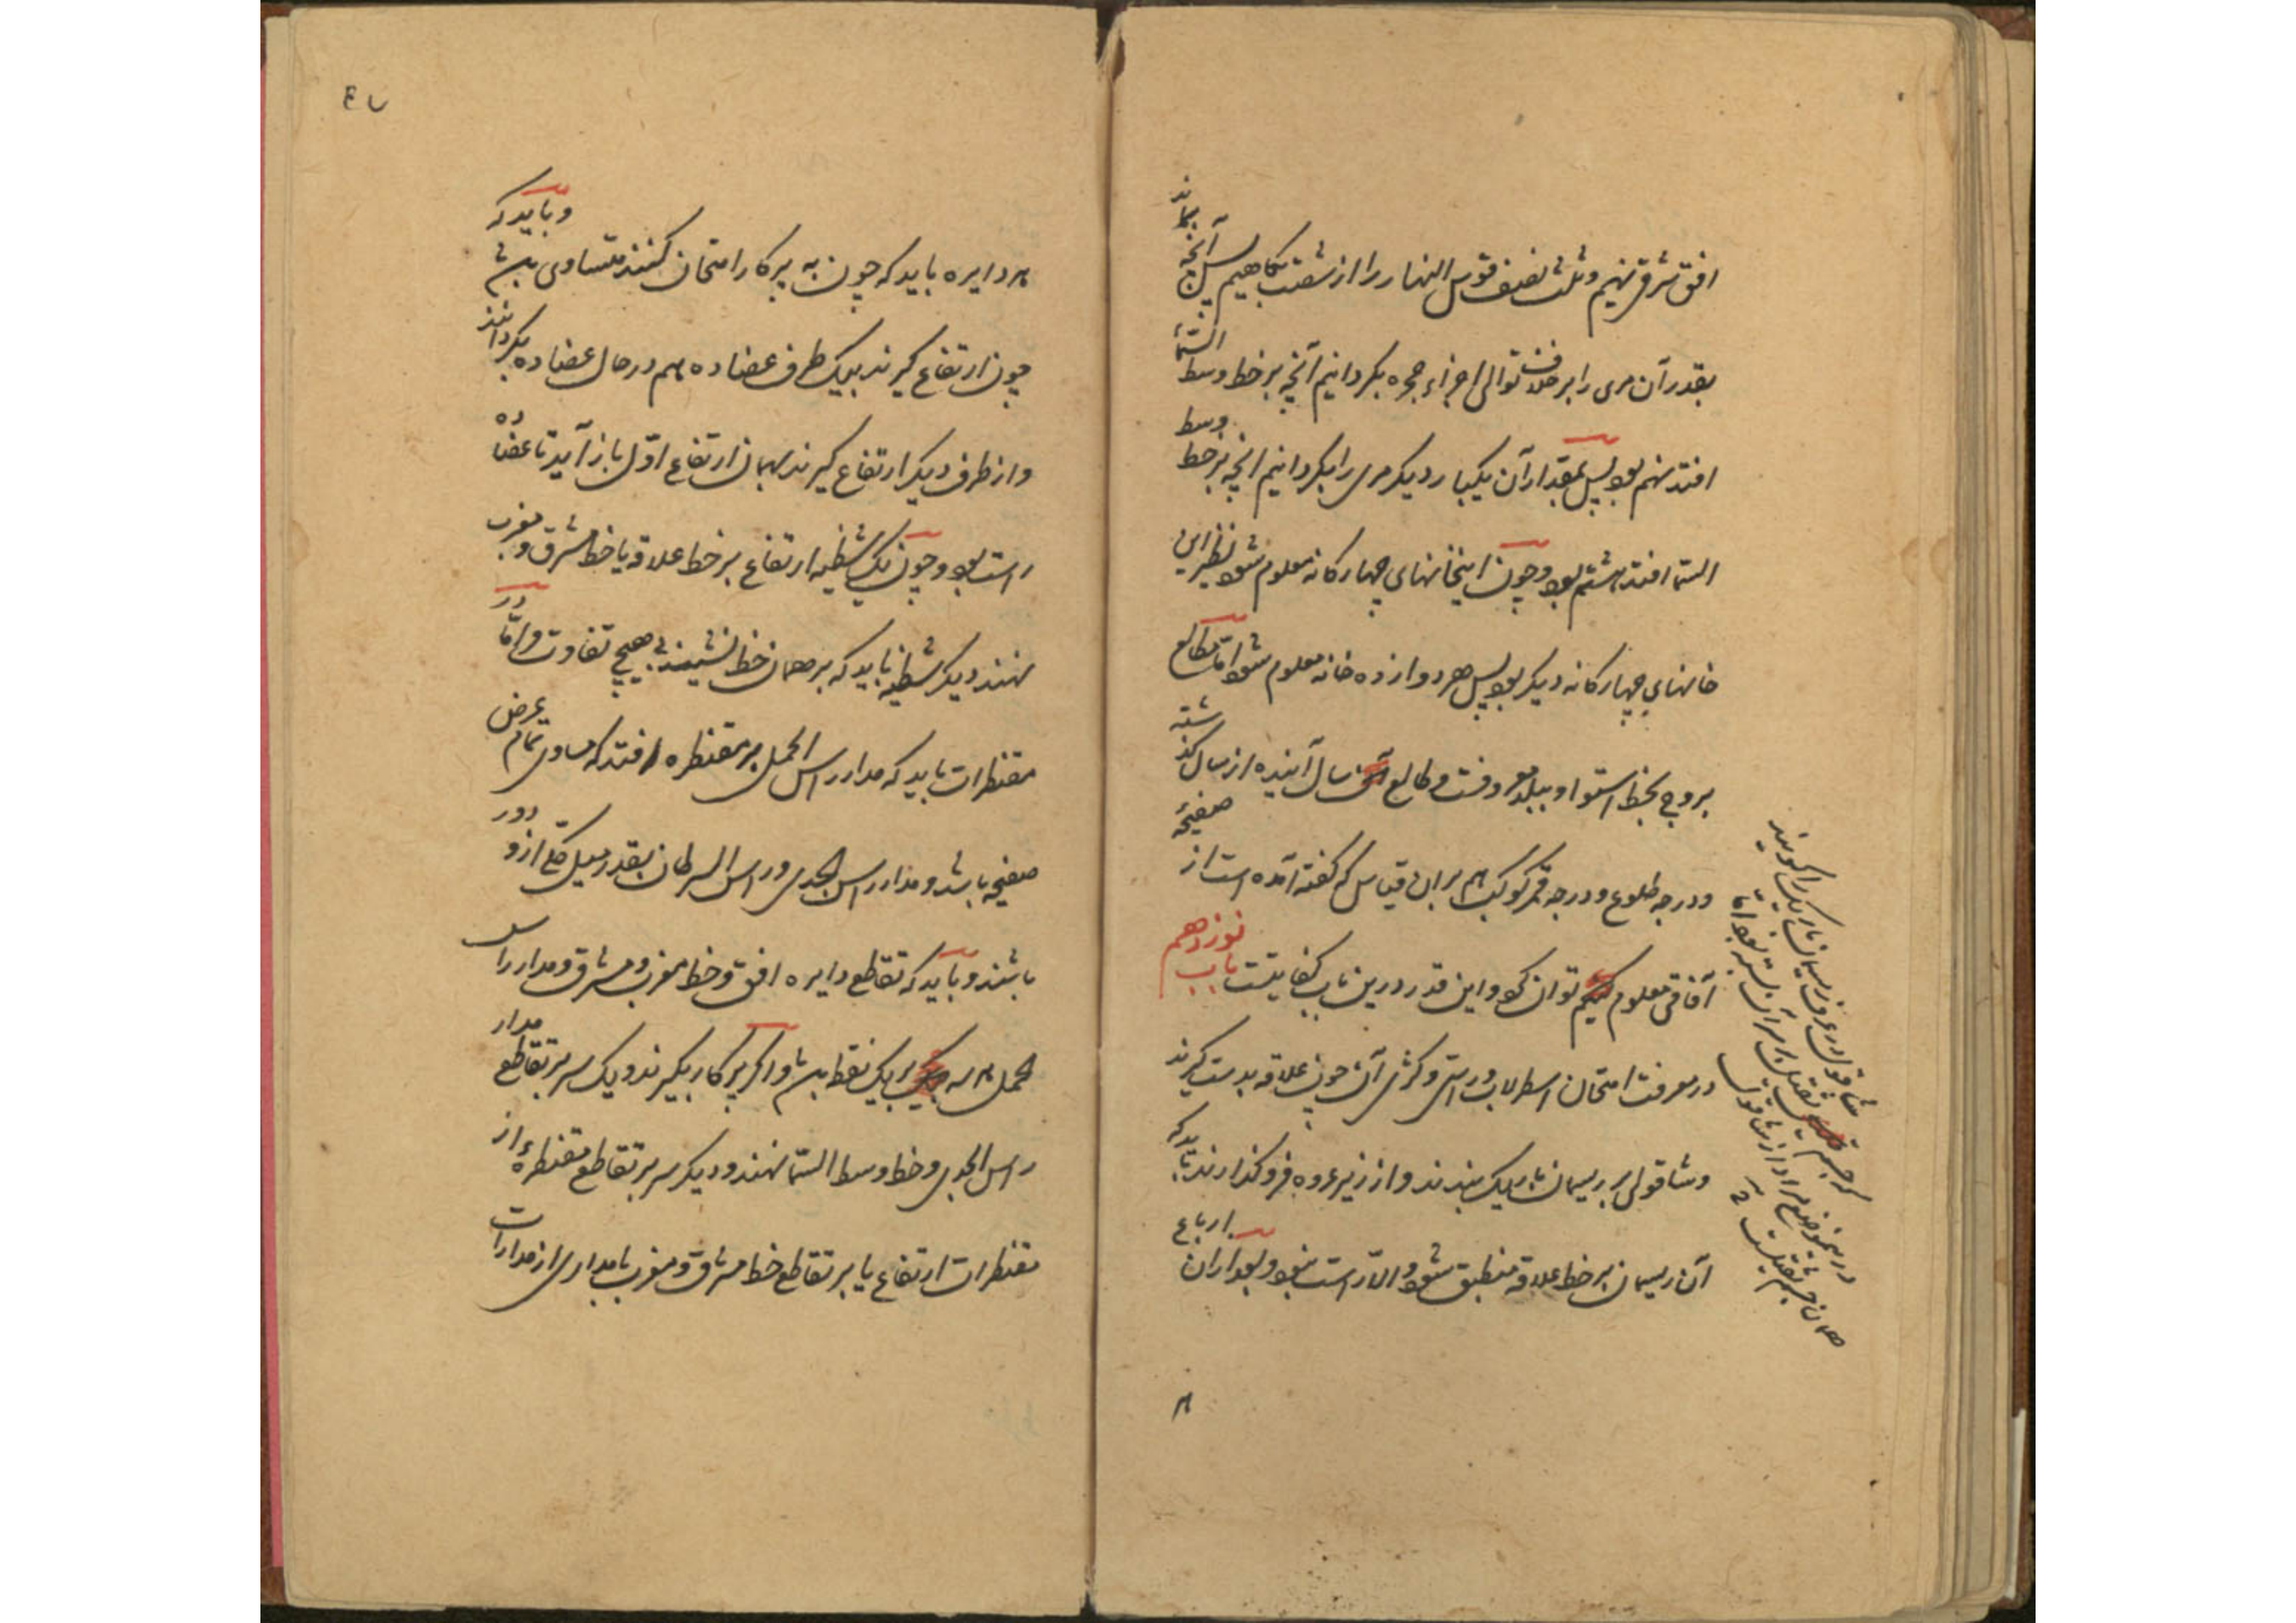 افق مشرق نهیم و ثلث نصف قوس النهار را از شصت بکاهیم پس آنچه بماند
بقدر آن مری را بر خلاف توالی اجزاء حجره بکردانیم آنچه بر خط وسط السّما
افتد نهم بود پس بمقدار آن یکبار دیکر مری را بکردانیم انچه بر خط وسط
السّما افتد هشتم بود و چون این خانهای چهارکانه معلوم شود نظیر این
خانهای چهارکانه دیکر بود پس هر دوازده خانه معلوم شود امّا مطالع
بروج بخط استوا و ببلد معروفست و طالع سال آینده از سال کذشته
و درجه طلوع و درجه ممر کوکب هم بران قیاس که کفته آمده است از صفیحهٔ
آفاقی معلوم توان کرد و این قدر درین باب کفایتست باب نوزدهم
در معرفت امتحان اسطرلاب و راستی و کژی آن چون علاقه بدست کیرند
و شاقولی بر ریسمان باریک بندند و از زیر عروه فرو کذارند باید که
آن ریسمان بر خط علاقه منطبق شود و الّا راست نبود و بعد ازان ارباع
شاقول در عرف ریسمان باریک را کویند
که جسم ثقیل بر آن بسته بود امّا
درینموضع مراد از شاقول
همان جسم ثقیلست
هر
۴۷
هر دایره باید که چون به پرکار امتحان کنند متساوی باشد و باید که
چون ارتفاع کیرند بیک طرف عضاده هم در حال عضاده بکردانند
و از طرف دیکر ارتفاع کیرند همان ارتفاع اوّل باز آید تا عضاده
راست بود و چون یک شظیه ارتفاع بر خط علاقه یا خط مشرق و مغرب
نهند دیکر شظیه باید که بر همان خط نشیند بی هیچ تفاوت و امّا در
مقنطرات باید که مدار راس الحمل بر مقنطره افتد که مساوی تمام عرض
صفیحه باشد و مدار راس الجدی و راس السرطان بقدر میل کلی ازو دور
باشند و باید که تقاطع دایره افق و خط مغرب و مشرق و مدار راس
الحمل هر سه بر یک نقطه باشد و اکر پرکار بکیرند و یک سر بر تقاطع مدار
راس الجدی و خط وسط السّما نهند و دیکر سر بر تقاطع مقنطرهٔ از
مقنطرات ارتفاع یا بر تقاطع خط مشرق و مغرب با مداری از مدارات